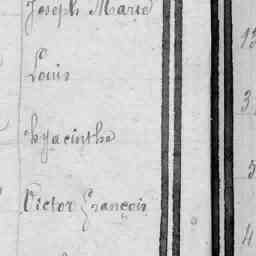 Joseph Marie
Louis
hyacinthe
Victor françois